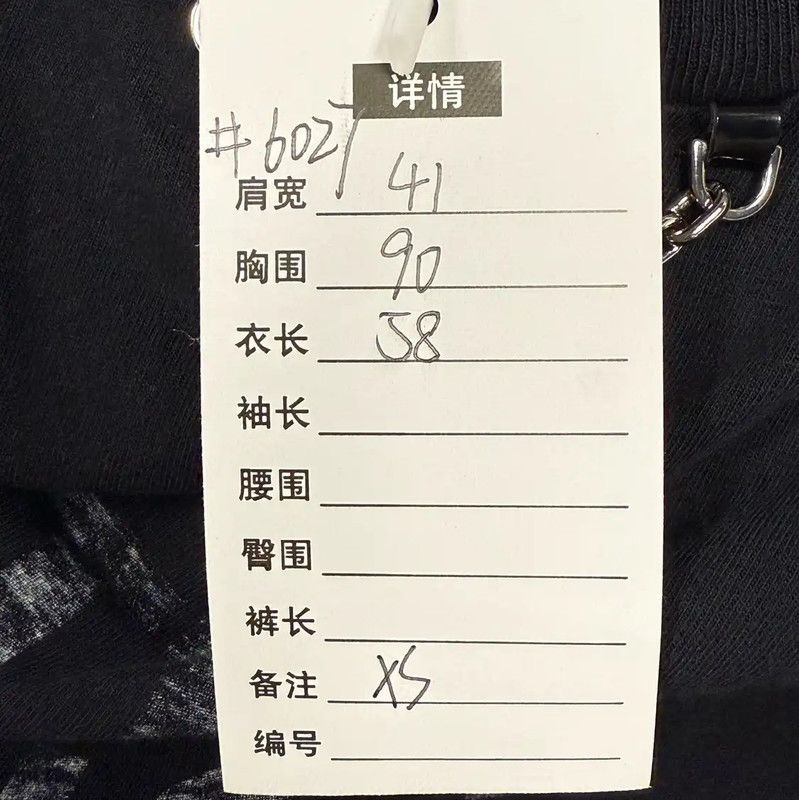 详情
#6027
肩宽 41
胸围 90
衣长 58
袖长
腰围
臀围
裤长
备注 XS
编号